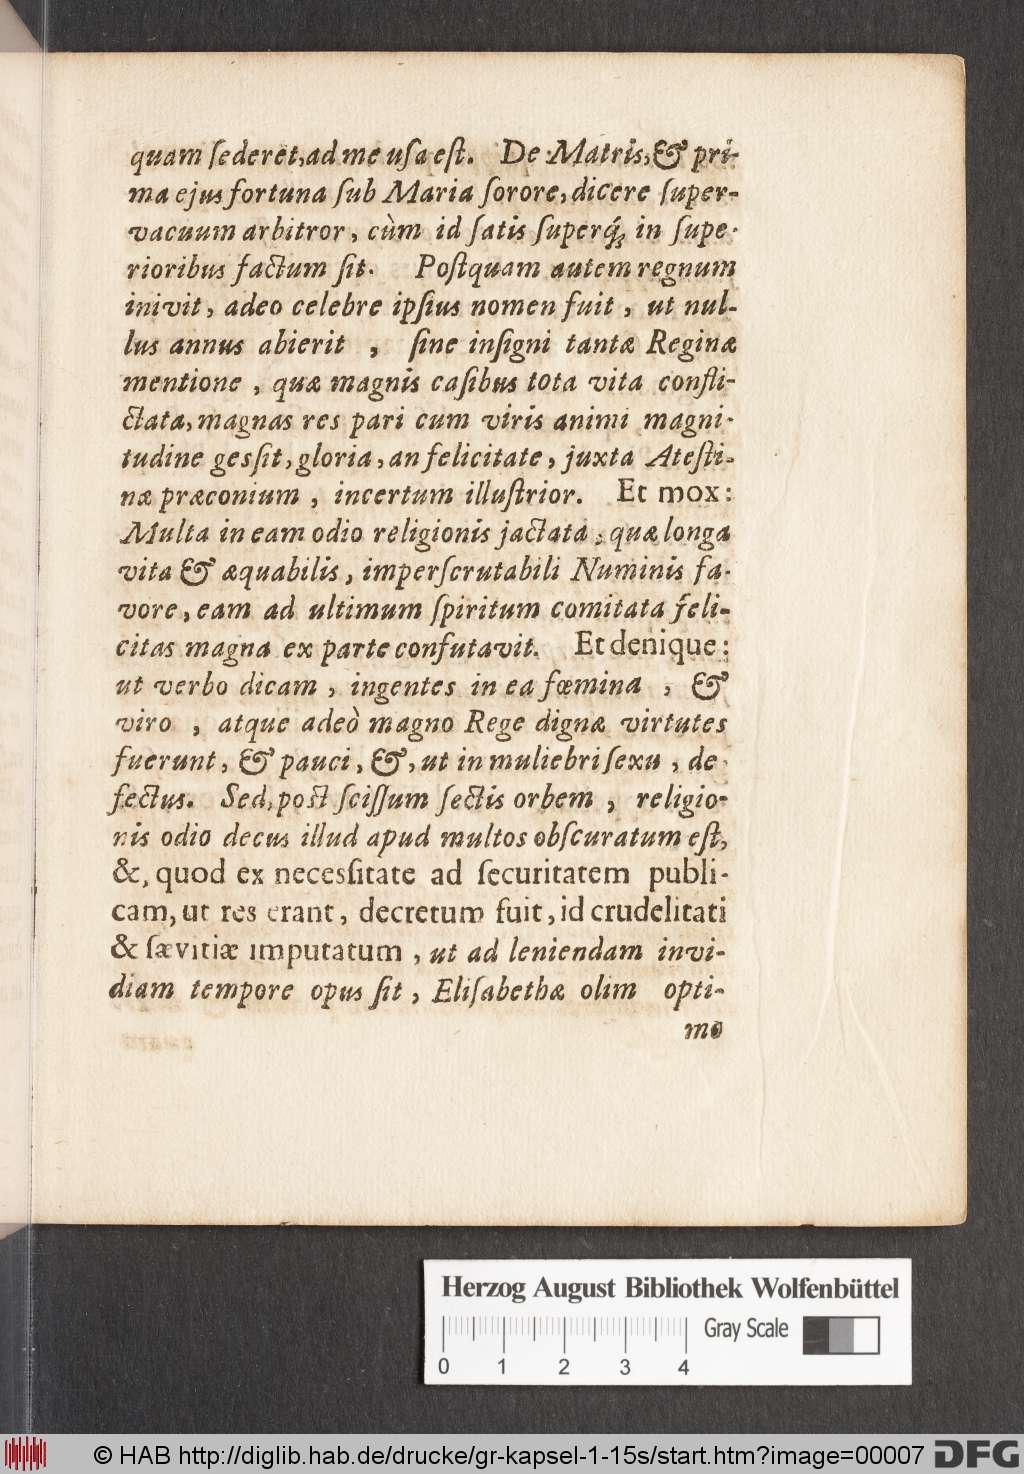 quam ſederet, ad me uſa eſt. De Matris, & pri-
ma ejus fortuna ſub Maria ſorore, dicere ſuper-
vacuum arbitror, cùm id ſatis ſuperq́; in ſupe-
rioribus factum ſit. Poſtquam autem regnum
inivit, adeo celebre ipſius nomen fuit, ut nul-
lus annus abierit, ſine inſigni tantæ Reginæ
mentione, quæ magnis caſibus tota vita confli-
ctata, magnas res pari cum viris animi magni-
tudine gesſit, gloria, an felicitate, juxta Ateſti-
næ præconium, incertum illuſtrior. Et mox:
Multa in eam odio religionis jactata, quæ longa
vita & æquabilis, imperſcrutabili Numinis fa-
vore, eam ad ultimum ſpiritum comitata feli-
citas magna ex parte confutavit. Et denique:
ut verbo dicam, ingentes in ea fœmina, &
viro, atque adeò magno Rege dignæ virtutes
fuerunt, & pauci, &, ut in muliebri ſexu, de-
fectus. Sed, poſt ſciſſum ſectis orbem, religio-
nis odio decus illud apud multos obſcuratum eſt,
&, quod ex necesſitate ad ſecuritatem publi-
cam, ut res erant, decretum fuit, id crudelitati
& ſævitiæ imputatum, ut ad leniendam invi-
diam tempore opus ſit, Eliſabethæ olim opti-
mo
Herzog August Bibliothek Wolfenbüttel
Gray Scale
0 1 2 3 4
© HAB http://diglib.hab.de/drucke/gr-kapsel-1-15s/start.htm?image=00007 DFG